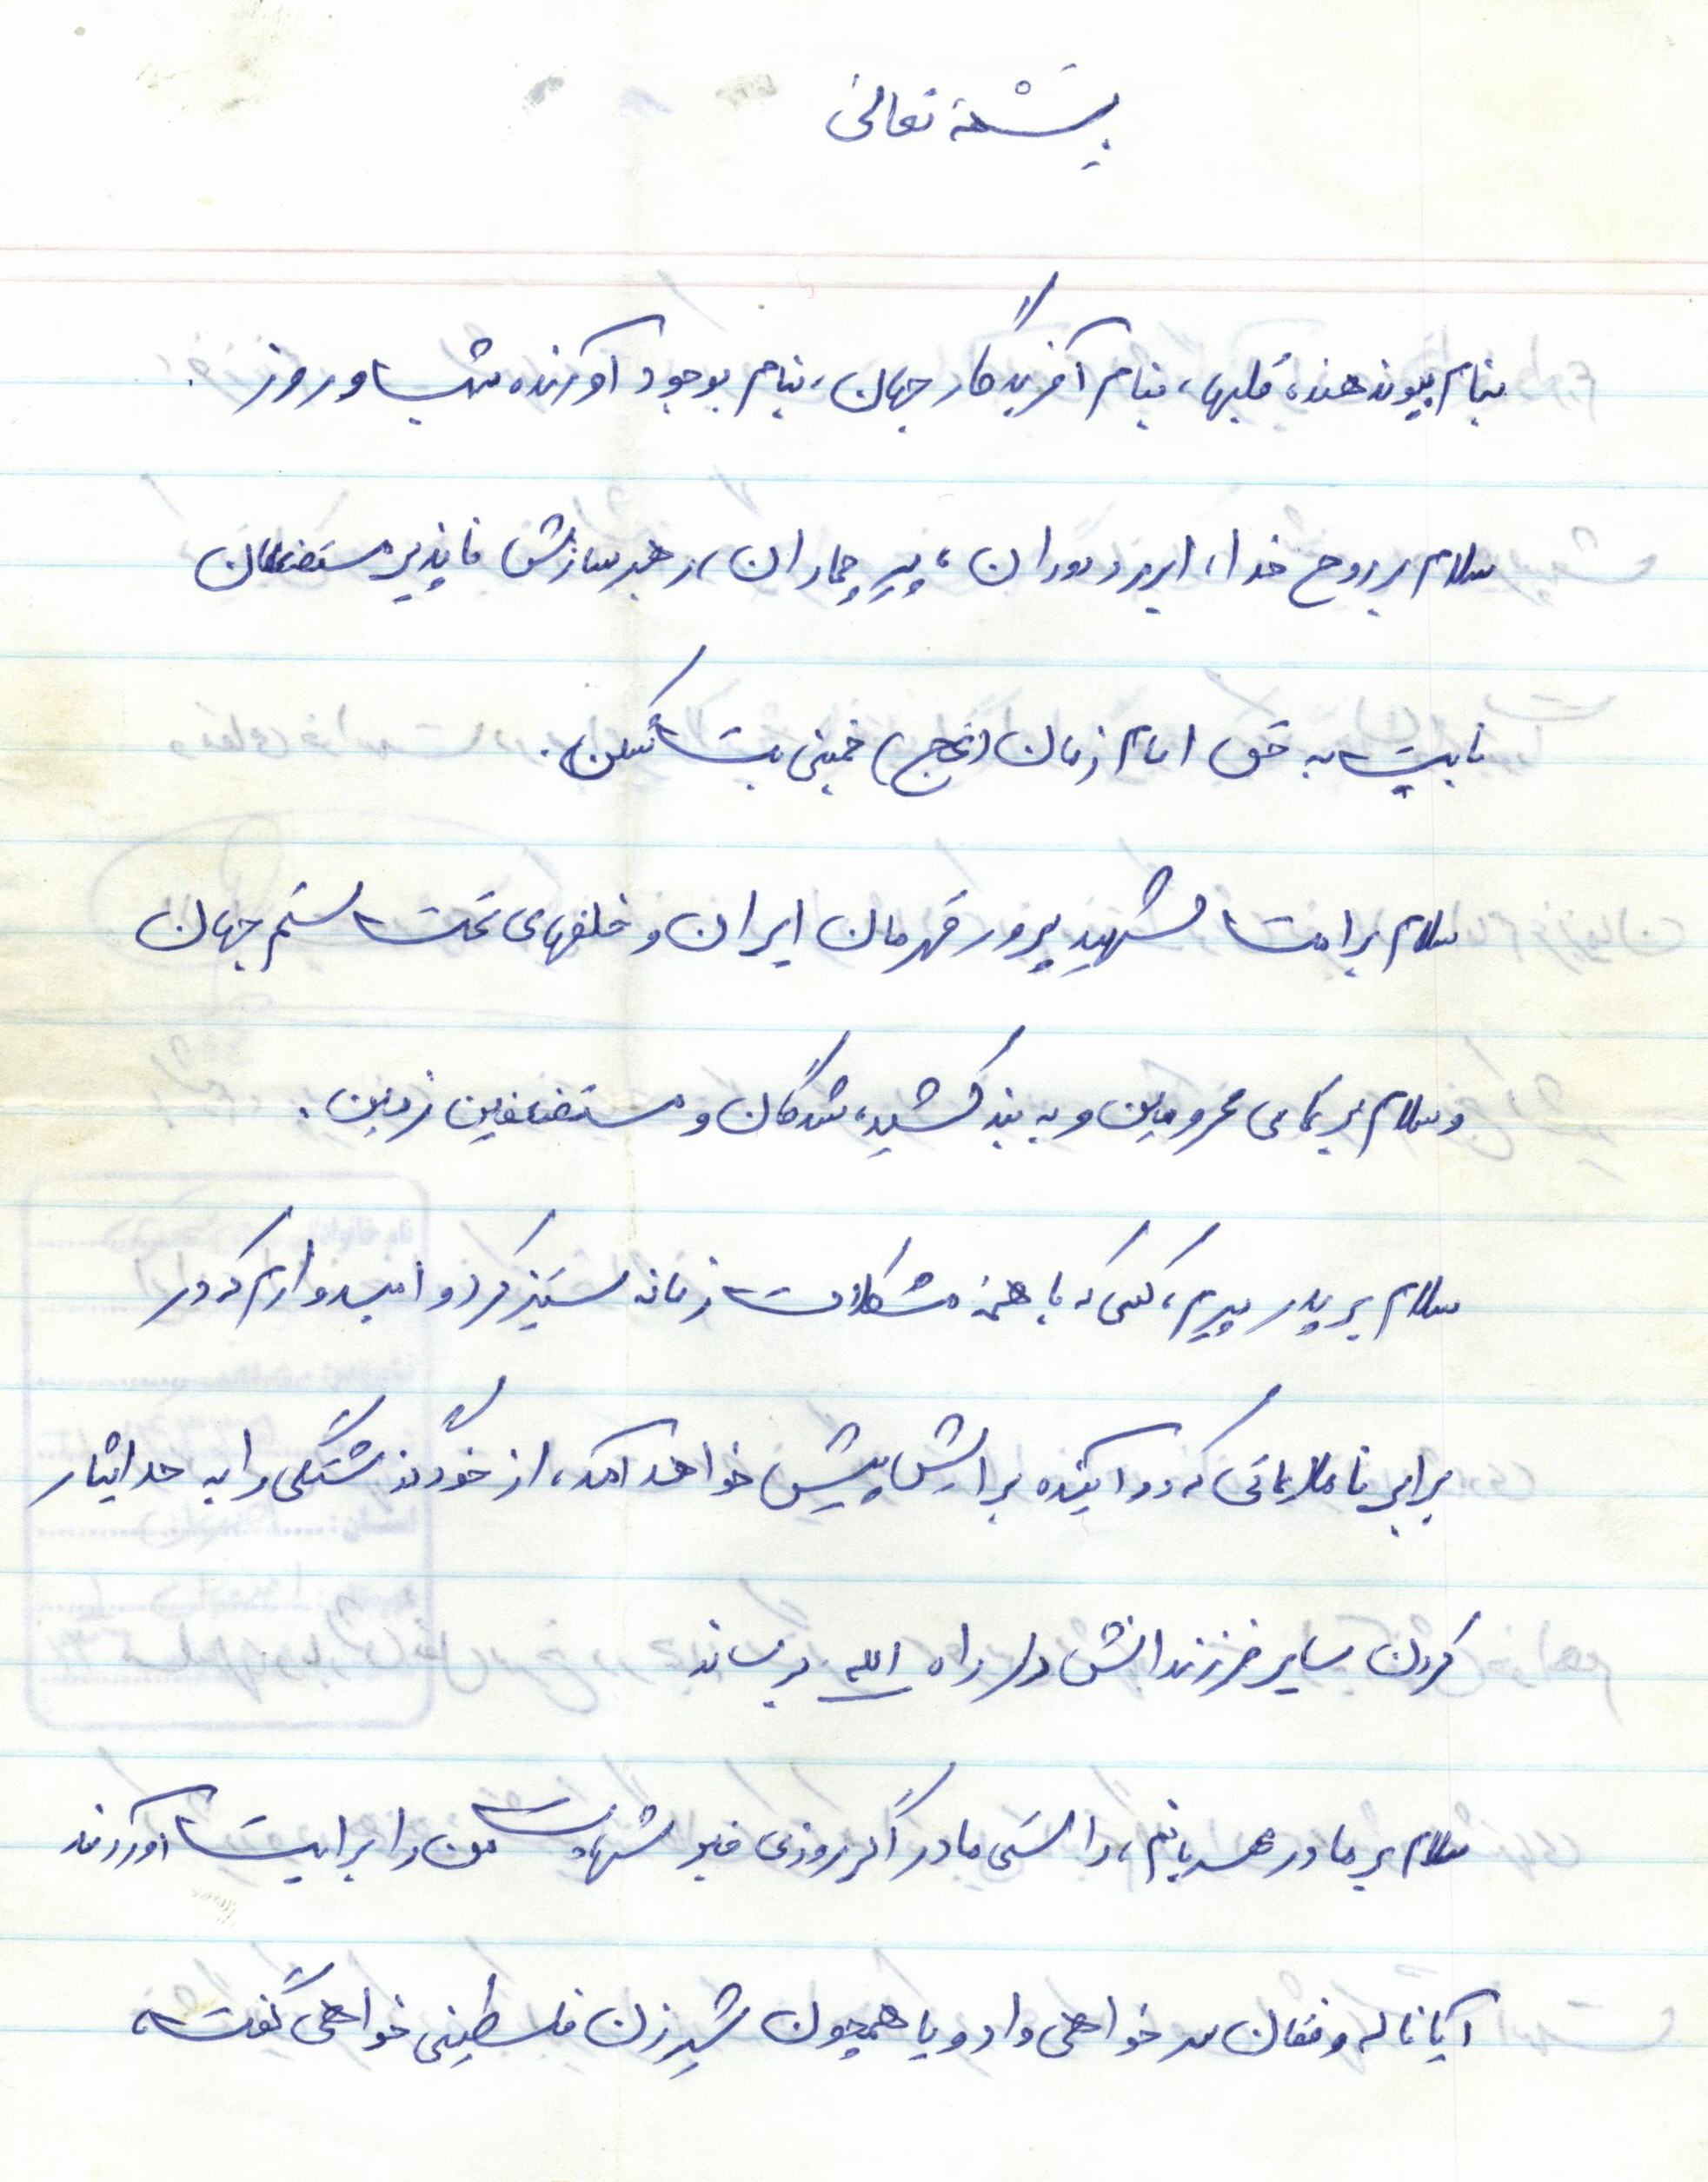 بِسْمِهِ تعالی
بنام پیوند دهنده قلبها، بنام آفریدگار جهان، بنام بوجود آورنده شب و روز.
سلام بر روح خدا، ابرمرد دوران، پیر جماران، رهبر سازش ناپذیر مستضعفان
نایب به حق امام زمان (عج) خمینی بت شکن.
سلام بر امت شهید پرور قهرمان ایران و خلقهای تحت ستم جهان
و سلام بر تمامی محرومین و به بند کشیده شدگان و مستضعفین زمین.
سلام بر پدر پیرم، کسی که با همه مشکلات زمانه ستیز کرد و امیدوارم که در
برابر ناملایماتی که در آینده برایش پیش خواهد آمد، از خودگذشتگی را به حد ایثار
کردن سایر فرزندانش در راه الله برساند
سلام بر مادر مهربانم، راستی مادر اگر روزی خبر شهادت من را برایت آوردند
آیا ناله و فغان سر خواهی داد و یا همچون شیر زن فلسطینی خواهی گفت،